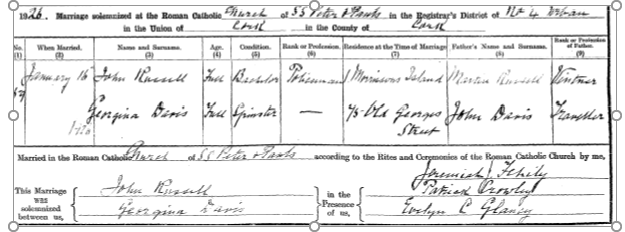 1926. Marriage solemnized at the Roman Catholic Church of SS Peter & Pauls in the Registrar's District of No 4 Urban
in the Union of Cork in the County of Cork
No. (1) When Married. (2) Name and Surname. (3) Age. (4) Condition. (5) Rank or Profession. (6) Residence at the Time of Marriage (7) Father's Name and Surname. (8) Rank or Profession of Father. (9)
January 16 John Russell Full Bachelor Policeman Morrisons Island Martin Russell Vintner
1926 Georgina Davis Full Spinster — 75 Old Georges Street John Davis Traveller
Married in the Roman Catholic Church of SS Peter & Pauls according to the Rites and Ceremonies of the Roman Catholic Church by me,
Jeremiah Fehily
This Marriage was solemnized between us,
John Russell
Georgina Davis
in the Presence of us,
Patrick Crowley
Evelyn C Glancy